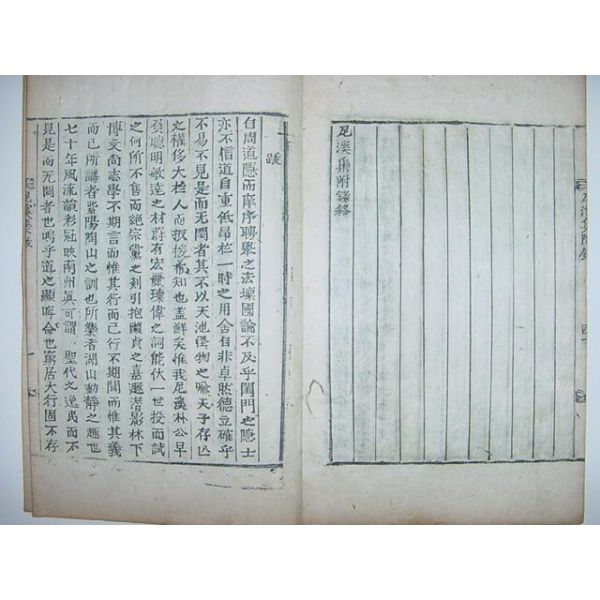 尼溪集附錄終
跋
自周道隱而庠序聘舉之法壞國論不及乎閨門之隱士
亦不信道自重低昂於一時之用舍自非卓然德立確乎
不易不見是而无悶者其不以天池怪物之喩天子存亾
之權侈大檢人而披挨希知也盖鮮矣惟我尼溪林公早
負聰明敏達之材蔚有宏麗瓌偉之詞能伏一世投而試
之何所不售而絕宗黨之剡引抱幽貞之嘉遯潛影林下
博文尚志學不期言而惟其行而已行不期聞而惟其義
而已所講者紫陽陶山之訓也所樂者湖山動靜之趣也
七十年風流韻彩冠映南州眞可謂 聖代之逸民而不
見是而无悶者也嗚乎道之顯晦命也窮居大行固不存